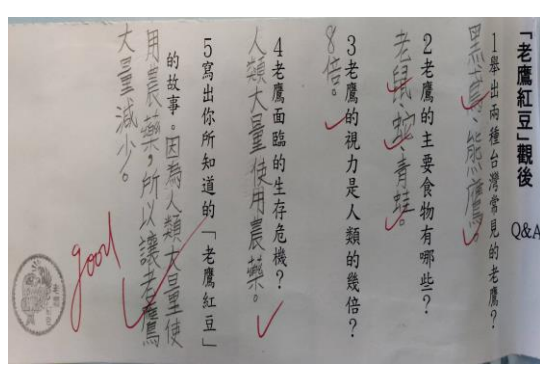 「老鷹紅豆」觀後
Q&A
1舉出兩種台灣常見的老鷹？
黑鳶、熊鷹。
2老鷹的主要食物有哪些？
老鼠、蛇、青蛙。
3老鷹的視力是人類的幾倍？
8倍。
4老鷹面臨的生存危機？
人類大量使用農藥。
5寫出你所知道的「老鷹紅豆」
的故事。因為人類大量使
用農藥，所以讓老鷹
大量減少。
good